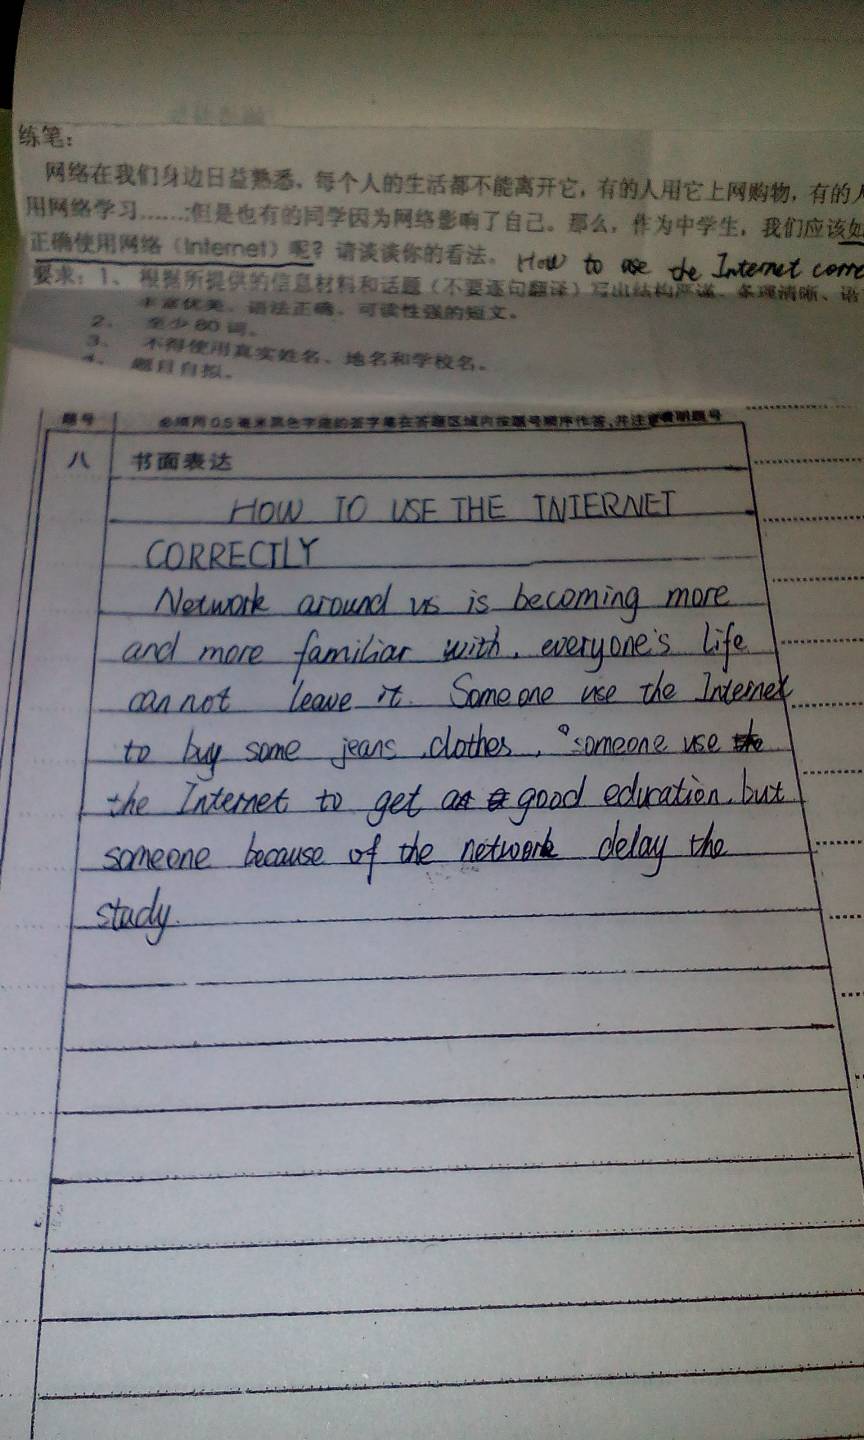 练笔：
网络在我们身边日益熟悉，每个人的生活都不能离开它，有的人用它上网购物，有的人
用网络学习……;但是也有的同学因为网络影响了自己。那么，作为中学生，我们应该如
正确使用网络（Internet）呢？请谈谈你的看法。 How to use the Internet corre
要求：1、 根据所提供的信息材料和话题（不要逐句翻译）写出结构严谨、条理清晰、语
丰富优美、语法正确、可读性强的短文。
2、 至少 80 词。
3、 不得使用真实姓名、地名和学校名。
4、 题目自拟。
题号 必须用 0.5 毫米黑色字迹的签字笔在答题区域内按题号顺序作答，并注意看明题号
八 书面表达
HOW TO USE THE INTERNET
CORRECTLY
Network around us is becoming more
and more familiar with, everyone's life
can not leave it. Some one use the Internet
to buy some jeans, clothes, someone use
the Internet to get good education. but
someone because of the network delay the
study.